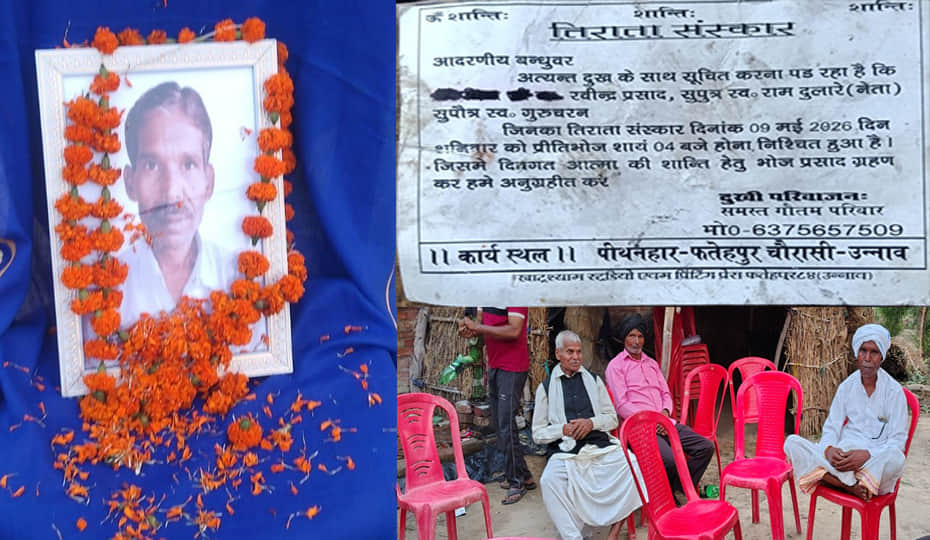 ॐ शान्तिः शान्तिः शान्तिः
तिराता संस्कार
आदरणीय बन्धुवर
अत्यन्त दुख के साथ सूचित करना पड रहा है कि
रवीन्द्र प्रसाद, सुपुत्र स्व० राम दुलारे (नेता)
सुपौत्र स्व० गुरुचरन
जिनका तिराता संस्कार दिनांक 09 मई 2026 दिन
शनिवार को प्रीतिभोज शायं 04 बजे होना निश्चित हुआ है।
जिसमे दिवगत आत्मा की शान्ति हेतु भोज प्रसाद ग्रहण
कर हमे अनुग्रहीत करे
दुखी परिवाजनः
समस्त गौतम परिवार
मो0-6375657509
।। कार्य स्थल ।। पीथनहार-फतेहपुर चौरासी-उन्नाव
खाटूश्याम स्टूडियो एवम प्रिंटिंग प्रेस फतेहपुर८४(उन्नाव)